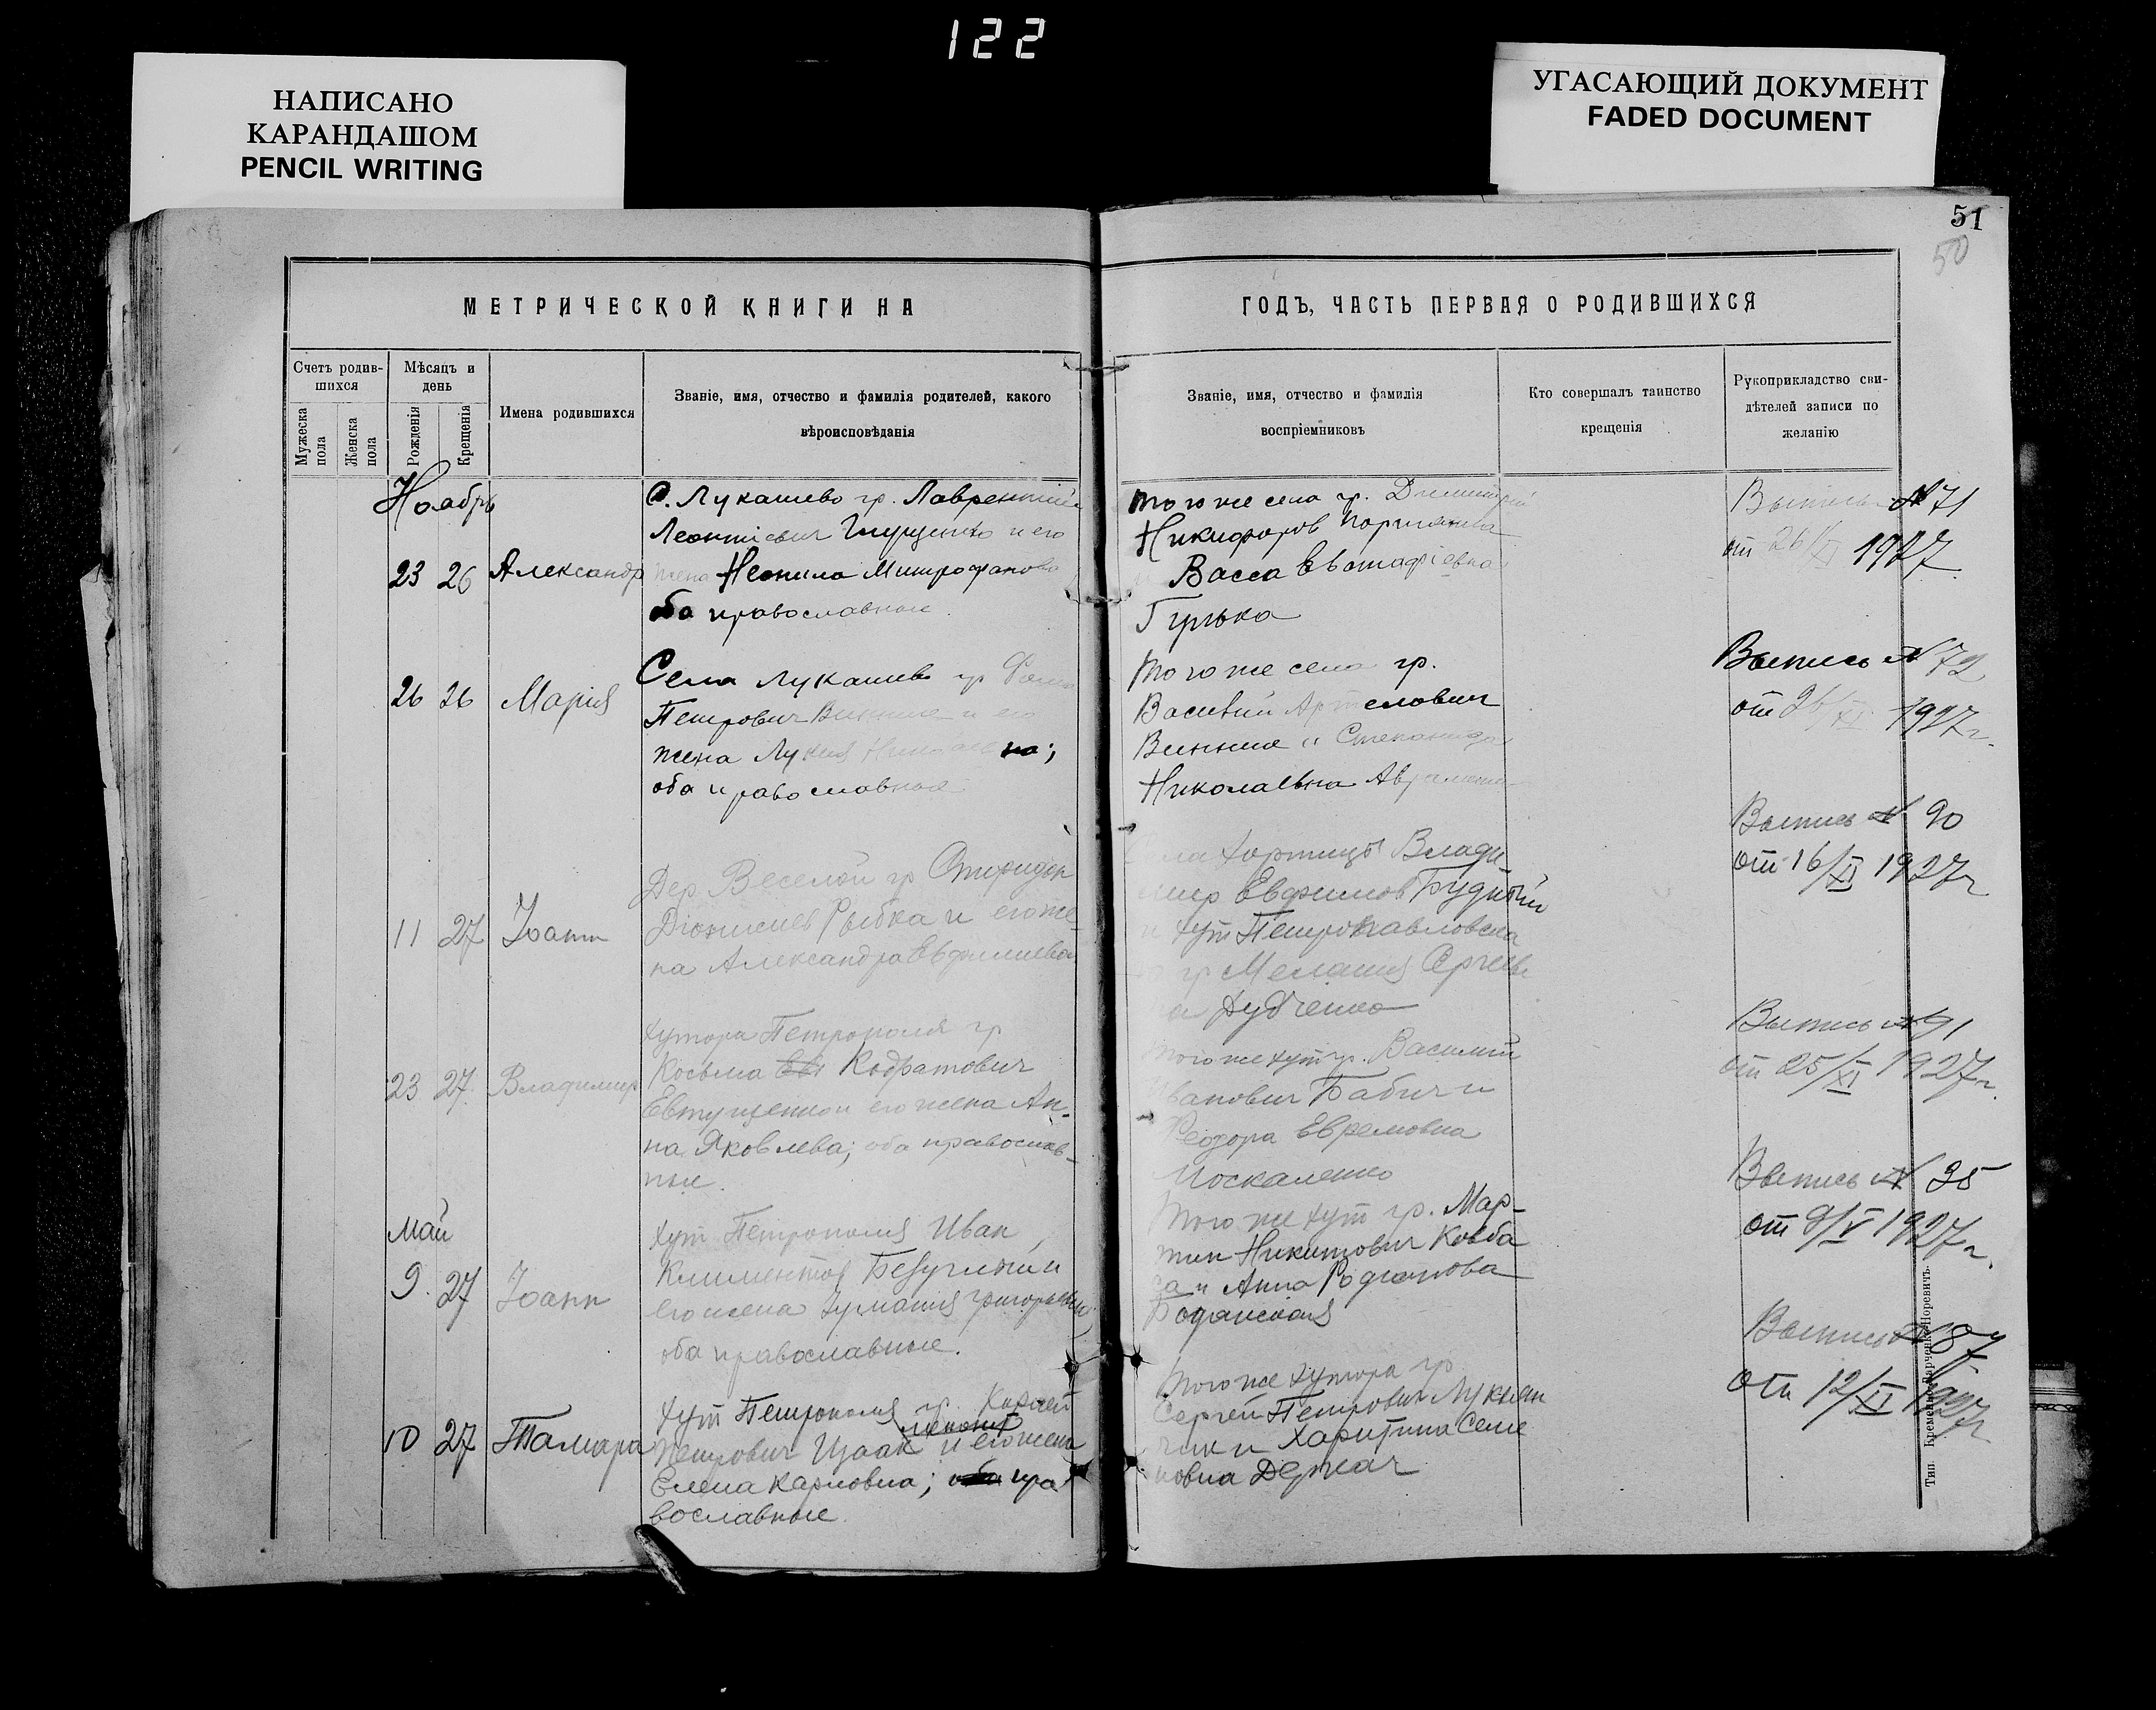 122
НАПИСАНО
КАРАНДАШОМ
PENCIL WRITING
УГАСАЮЩИЙ ДОКУМЕНТ
FADED DOCUMENT
51
50
МЕТРИЧЕСКОЙ КНИГИ НА
ГОДЪ, ЧАСТЬ ПЕРВАЯ О РОДИВШИХСЯ
Счетъ родив-
шихся
Мужеска
пола
Женска
пола
Мѣсяцъ и
день
Рожденія
Крещенія
Имена родившихся
Званіе, имя, отчество и фамилія родителей, какого
вѣроисповѣданія
Званіе, имя, отчество и фамилія
воспріемниковъ
Кто совершалъ таинство
крещенія
Рукоприкладство сви-
дѣтелей записи по
желанію
Ноябрь
23 26 Александр
С. Лукашево гр. Лаврентий
Леонтіевич и его
жена Неонила Митрофанова
оба православные.
того же села гр. Димитрий
Никифоров
и Васса Евстафіевна
Гурька
Выпись № 71
от 26/XI 1927
26 26 Марія
Села Лукашево гр
Петрович Винник и его
жена Лукия на;
оба православные
того же села гр.
Василий
Винник и Степанида
Николаевна
Выпись № 72
от 26/XI 1927 г.
11 27 Іоанн
Дер. Веселой гр Спиридон
Діонисиев Рыбка и его же
на Александра Евфимиева
Села Хортицы Влади
мир Евфимов Будный
и хут Петропавловска
гр Мелания Сергеев
на Дубченко
Выпись № 90
от 16/XI 1927 г
23 27 Владимир
Хутора Петрополя гр
Косьма Кодратович
Евтушенко и его жена Ан-
на Яковлева; оба православ-
ные.
того же хут гр. Василий
Иванович Бабич и
Феодора Ефремовна
Москаленко
Выпись № 91
от 25/XI 1927 г.
май
9. 27 Іоанн
хут Петрополя Иван
Климентов Безуглый и
его жена Григорьевна
оба православные.
того же хут гр. Мар-
тин Никитович Ковба
са и Анна Родионова
Боданская
Выпись № 35
от 9/V 1927 г.
10 27 Тамара
хут Петрополя гр. Корней
Петрович Изаак и его жена
Елена Карловна; оба пра
вославные.
того же хутора гр
Сергей Петрович Лукьян
чик и Харитина Семе
новна Держач
Выпись № 87
от 12/XI 1927 г
Тип. Кременецъ Харченко-Норевичъ.